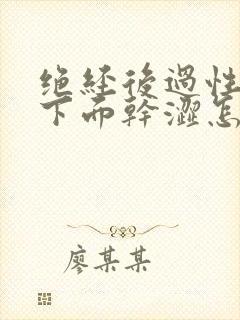 绝经后過性
下面幹澀怎
廖某某